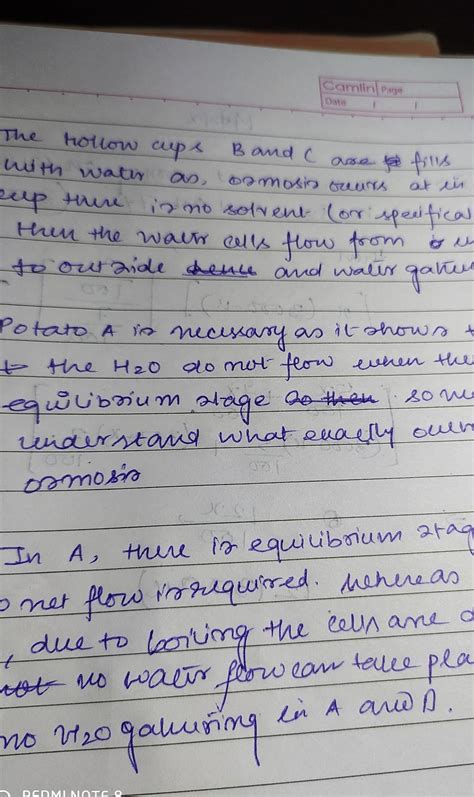 Camlin Page
Date
The Hollow cups B and C are fills
with water as, osmosis occurs at in
cup there is no solvent (or specifica
then the water cells flow from
to outside and water gather
Potato A is necessary as it shows t
the H2O do not flow when the
equilibrium stage so then so we
understand what exactly occur
osmosis
In A, there is equilibrium stag
o net flow is required. Whereas
, due to boiling the cells are d
not no water flow can take pla
no H2O gathering in A and D.
REDMI NOTE 8